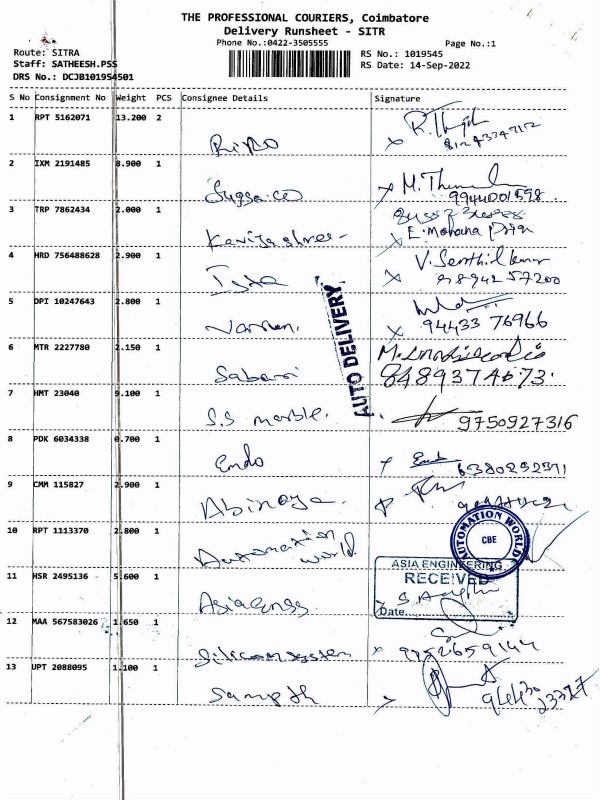 THE PROFESSIONAL COURIERS, Coimbatore
Delivery Runsheet - SITR
Phone No.:0422-3505555
Page No.:1
Route: SITRA
RS No.: 1019545
Staff: SATHEESH.PSS
RS Date: 14-Sep-2022
DRS No.: DCJB101954501
S No Consignment No Weight PCS Consignee Details Signature
1 RPT 5162071 13.200 2
2 IXM 2191485 8.900 1 M.
9944001598
3 TRP 7862434 2.000 1 Kavijashree
E. Mohana Priya
4 HRD 756488628 2.900 1 V. Senthil kumar
98942 57200
5 DPI 10247643 2.800 1
94433 76966
6 MTR 2227780 2.150 1 Sabari
8489374673
7 HMT 23040 9.100 1 S.S marble.
9750927316
8 PDK 6034338 0.700 1 Endo
9 CMM 115827 2.900 1 Abinaya
10 RPT 1113370 2.800 1 Automation world
AUTOMATION WORLD
CBE
AUTO DELIVERY
ASIA ENGINEERING
RECEIVED
Date
11 HSR 2495136 5.600 1 Asia Engg
12 MAA 567583026 1.650 1 Silicon system
9752659144
13 UPT 2088095 1.100 1 Sampth